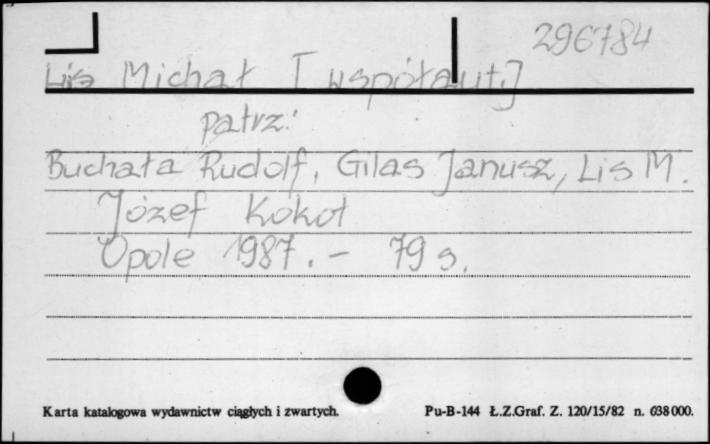 296784
Lis Michał [współaut.]
patrz:
Buchała Rudolf, Gilas Janusz, Lis M.
Józef Kokot
Opole 1987. - 79 s.
Karta katalogowa wydawnictw ciągłych i zwartych.
Pu-B-144 Ł.Z.Graf. Z. 120/15/82 n. 638000.